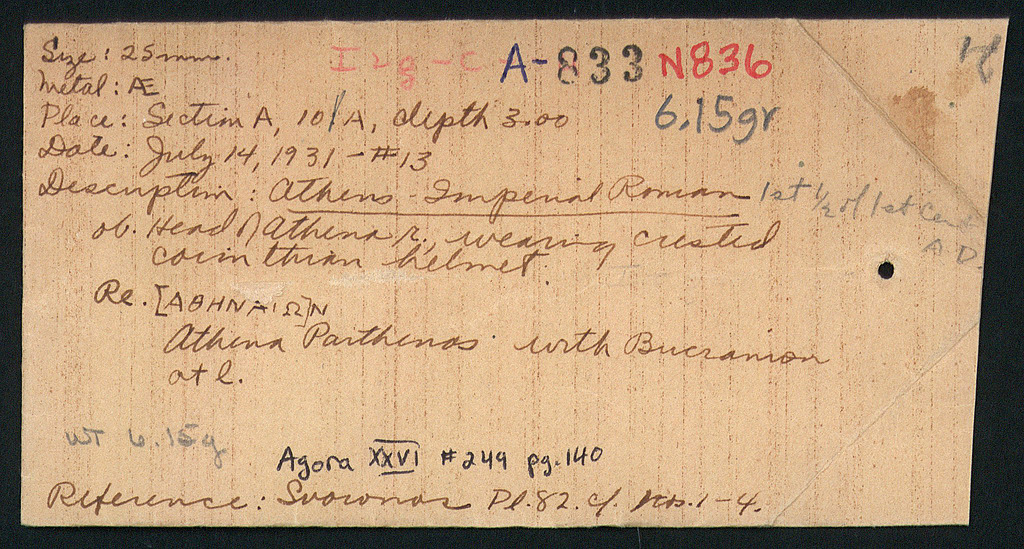 Size: 25mm. A-833 N836
Metal: Æ
Place: Section A, 10/A, depth 3.00 6.15gr
Date: July 14, 1931 - #13
Description: Athens - Imperial Roman 1st 1/2 of 1st Cent A.D.
ob. Head of Athena r., wearing crested
corinthian helmet.
Re. [ΑΘΗΝΑΙΩ]Ν
Athena Parthenos with Bucranion
at l.
WT 6.15g
Agora XXVI #249 pg.140
Reference: Svoronos Pl.82. cf. nos. 1-4.